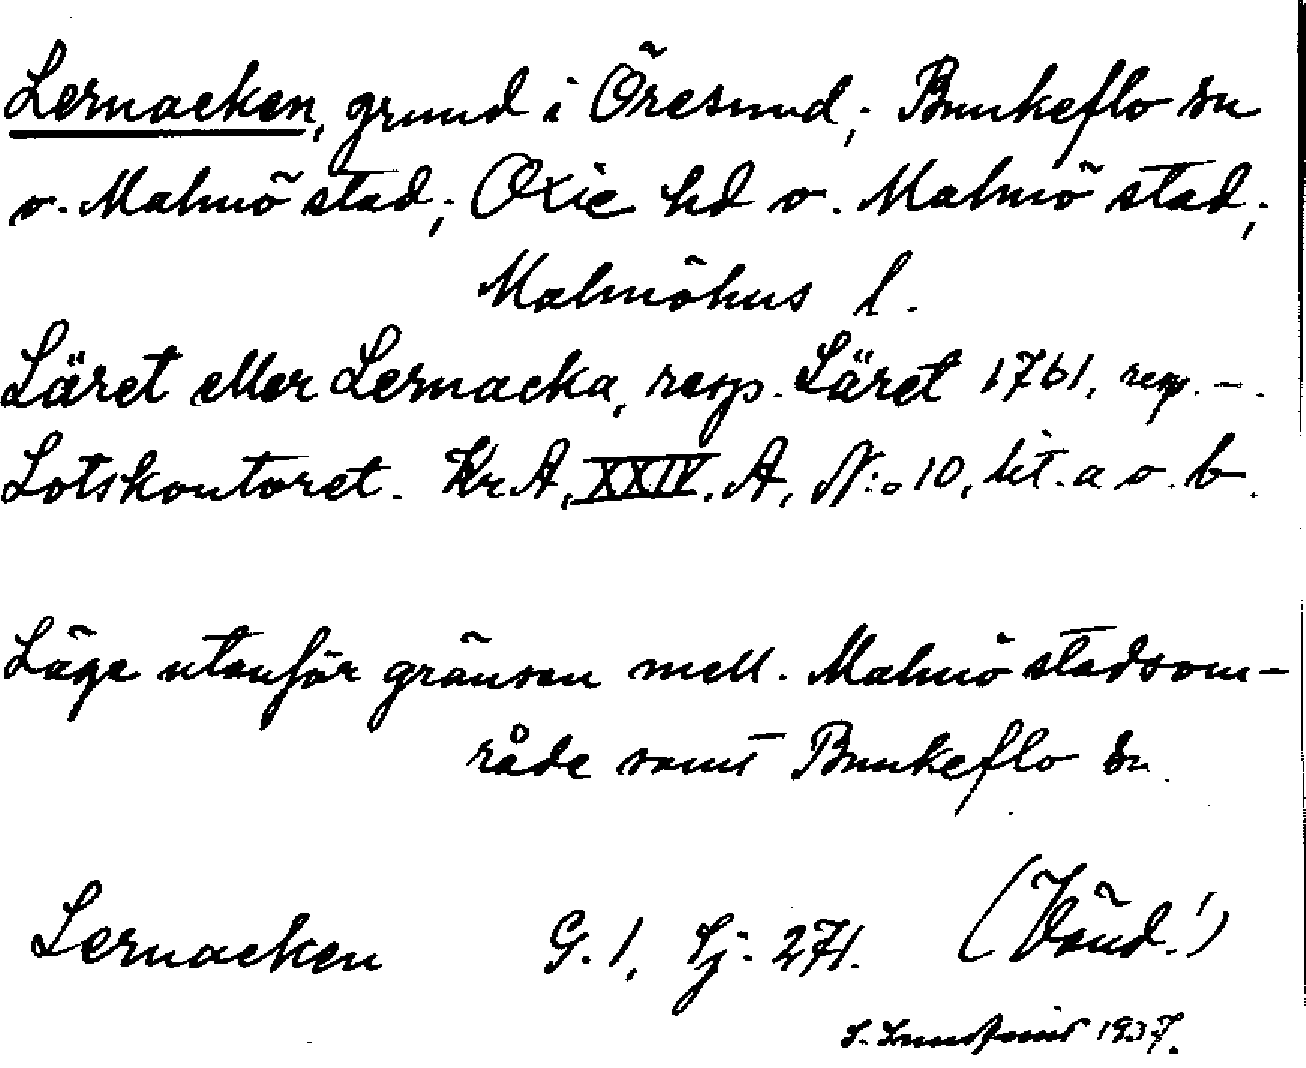 Lernacken, grund i Öresund; Bunkeflo sn
o. Malmö stad; Oxie hd o. Malmö stad;
Malmöhus l.
Läret eller Lernacka, resp. Läret 1761, resp. –.
Lotskontoret. Kr A, XXIV. A, N:o 10, lit. a o. b.
Läge utanför gränsen mell. Malmö stadsom-
råde samt Bunkeflo sn.
Lernacken G. 1, Sj. 271. (Vänd!)
1937.